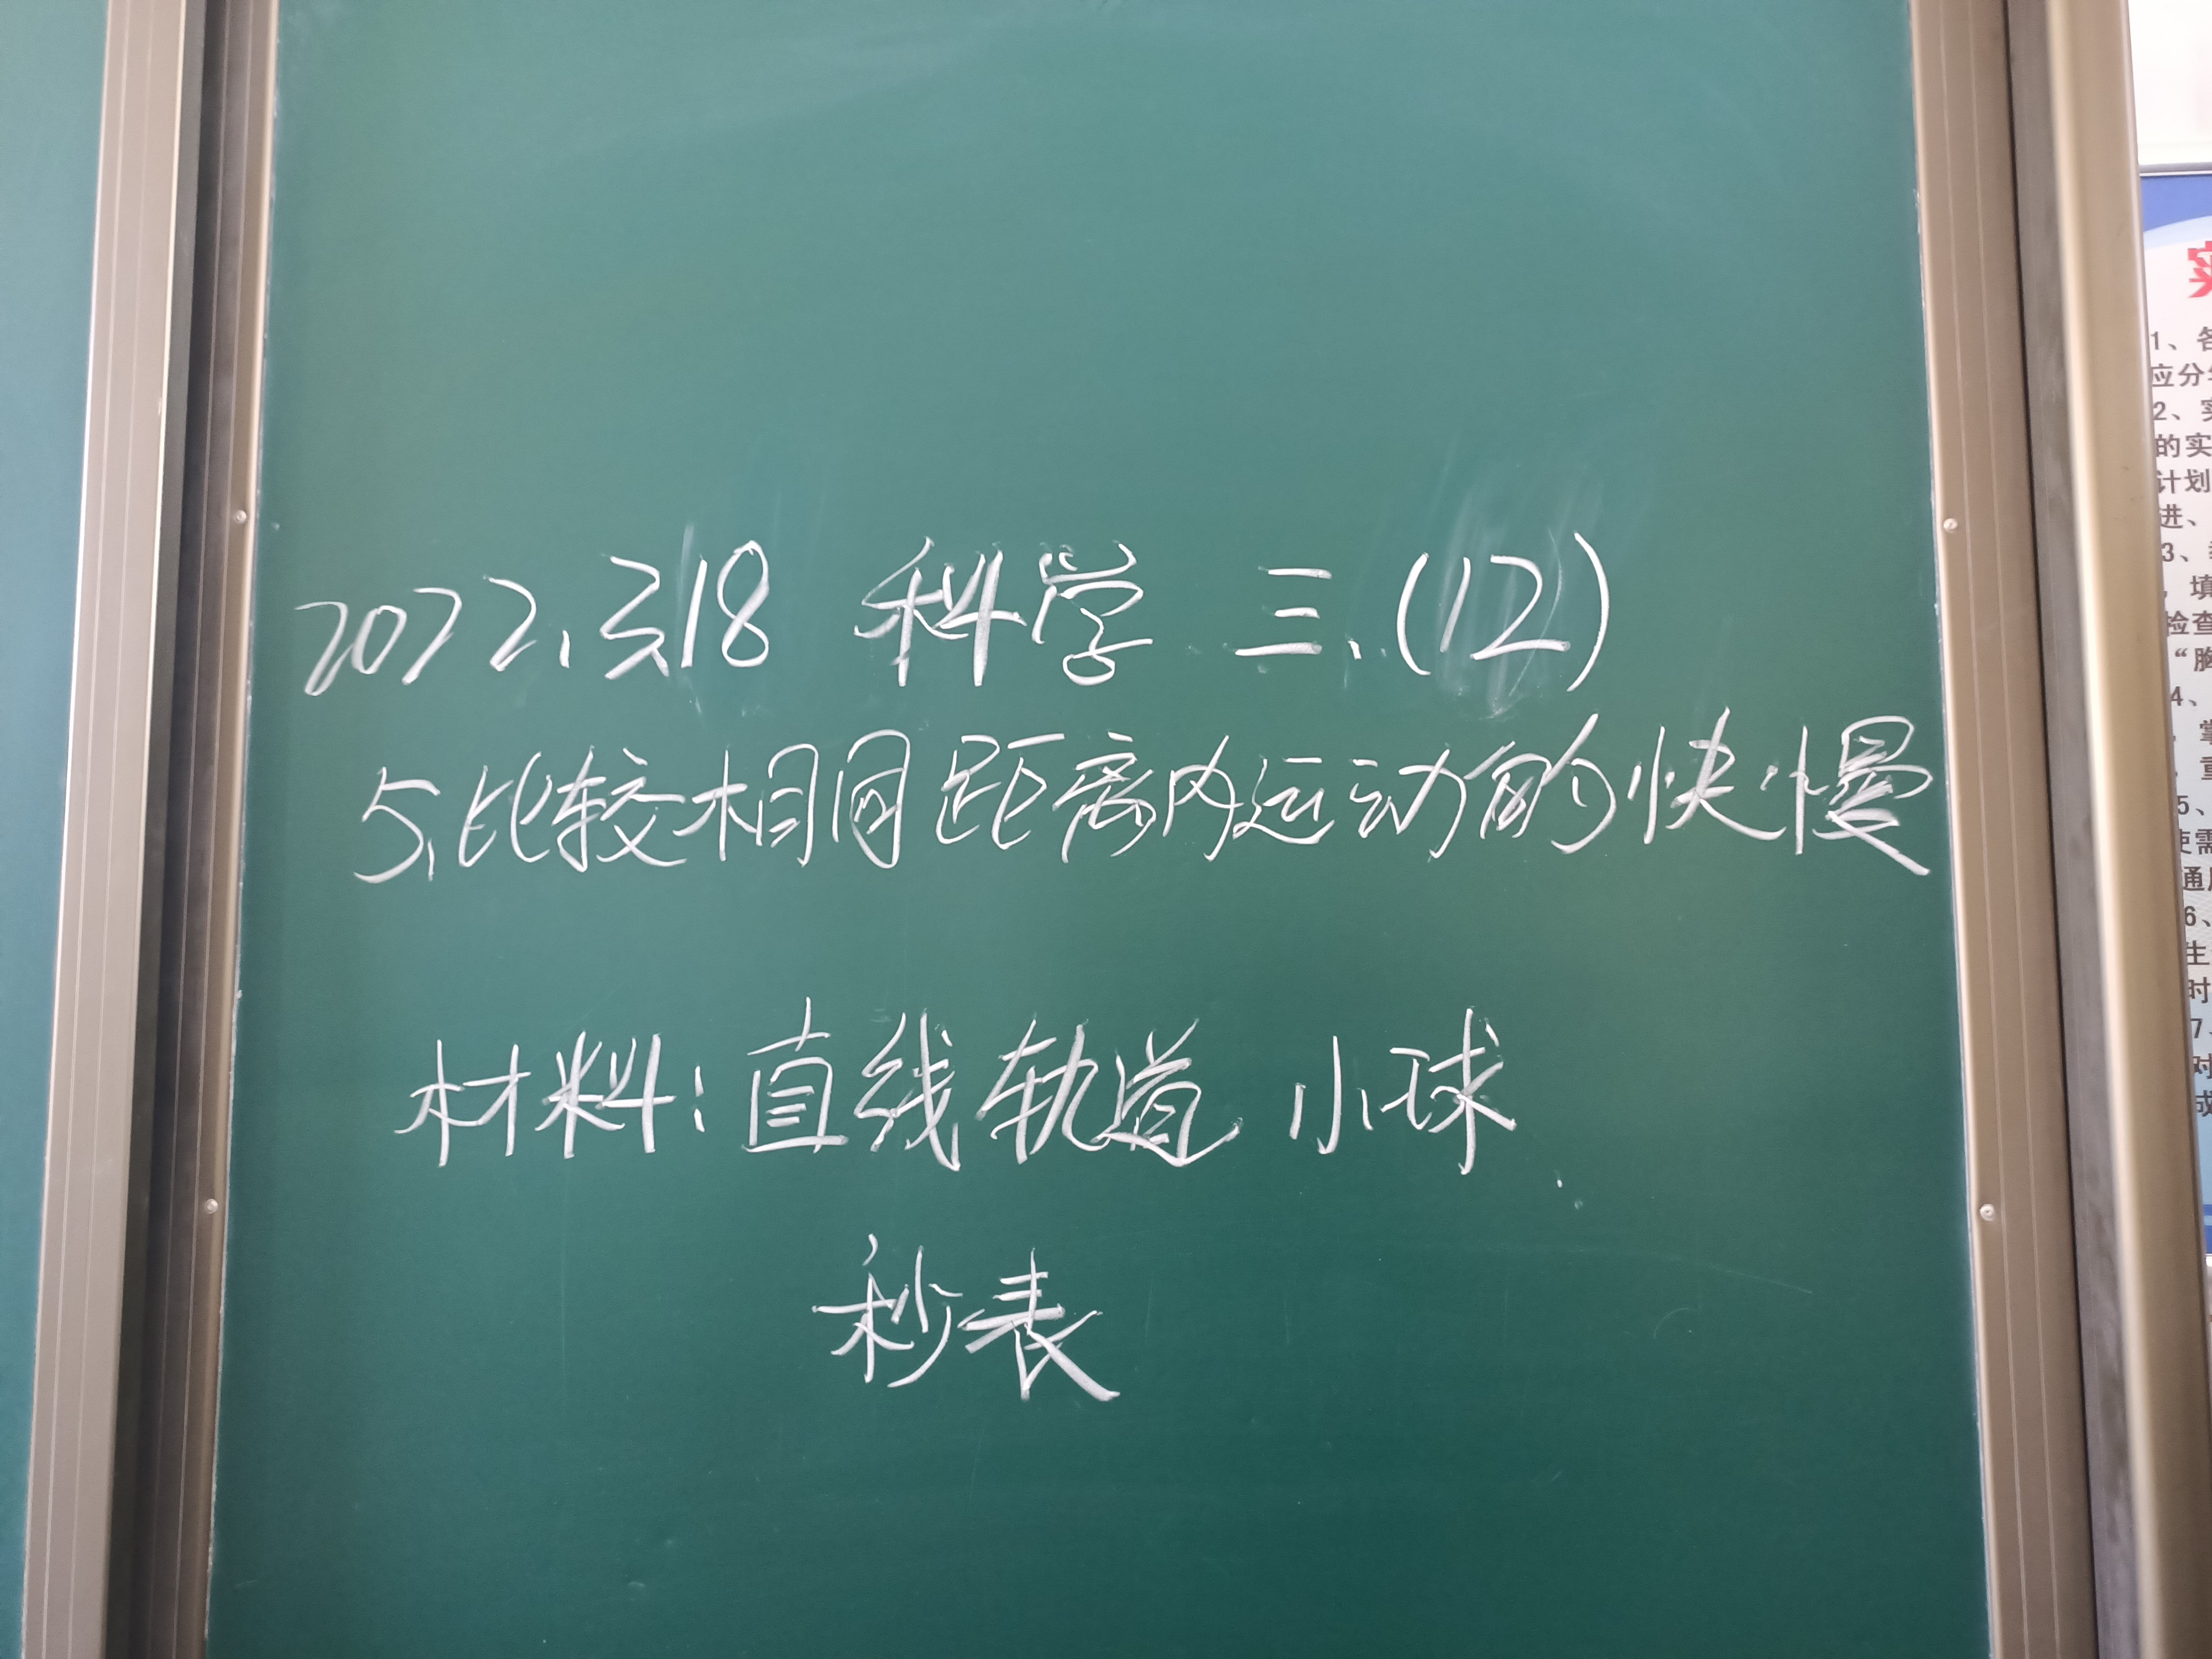 2022.3.18 科学 三.(12)
5.比较相同距离内运动的快慢
材料:直线轨道 小球
秒表
1、各
应分
2、实
的实
计划
进、
3、
填
检查
“胸
4、
掌
重
5、
使需
通
6、
生
时
7、
对
成